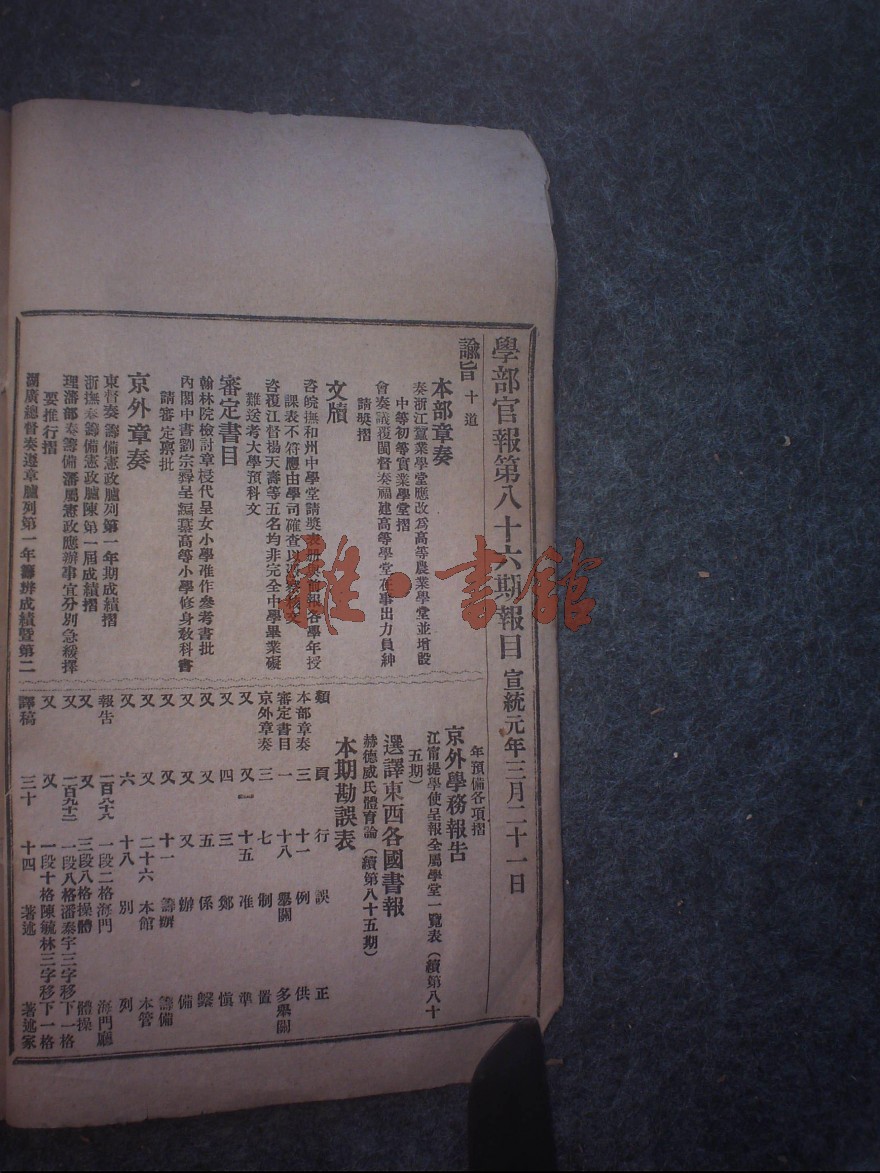 學部官報第八十六期報目 宣統元年三月二十一日
諭旨 十道
本部章奏
奏浙江蠶業學堂應改爲高等農業學堂並增設
中等初等實業學堂摺
會奏議覆閩督奏福建高等學堂在事出力員紳
請奬摺
文牘
咨皖撫和州中學堂請奬表册與前報各學年授
課表不符應由學司確查以憑察核文
咨覆江督楊天壽等五名均非完全中學畢業礙
難送考大學預科文
審定書目
翰林院檢討章梫代呈女小學准作參考書批
內閣中書劉宗彝呈編纂高等小學修身敎科書
請審定禀批
京外章奏
東督奏籌備憲政臚列第一年期成績摺
浙撫奏籌備憲政臚陳第一屆成績摺
理藩部奏籌備藩屬憲政應辦事宜分別急緩擇
要推行摺
湖廣總督奏遵章臚列第一年籌辦成績暨第二
年預備各項摺
京外學務報告
江甯提學使呈報全屬學堂一覽表(續第八十
五期)
選譯東西各國書報
赫德威氏體育論(續第八十五期)
本期勘誤表
類 頁 行 誤 正
本部章奏 三 十一 例 供
審定書目 一 十八 舉關 多舉關
京外章奏 三 七 制 置
又 又 十五 准 準
又 四 三 鄭 愼
又 又 五 係 繫
又 又 又 辦 備
又 又 十一 籌辦 籌備
又 又 二十六 本館 本管
又 六 十八 別 列
報告 一百六十六 一段二格海門 海門廳
又 又 三段八格操體 體操
又 一百九十二 一段八格潘泰宇三字移下一格
又 又 一段十格陳毓林三字移下一格
譯稿 三十 十四 著述 著述家
雒·書館